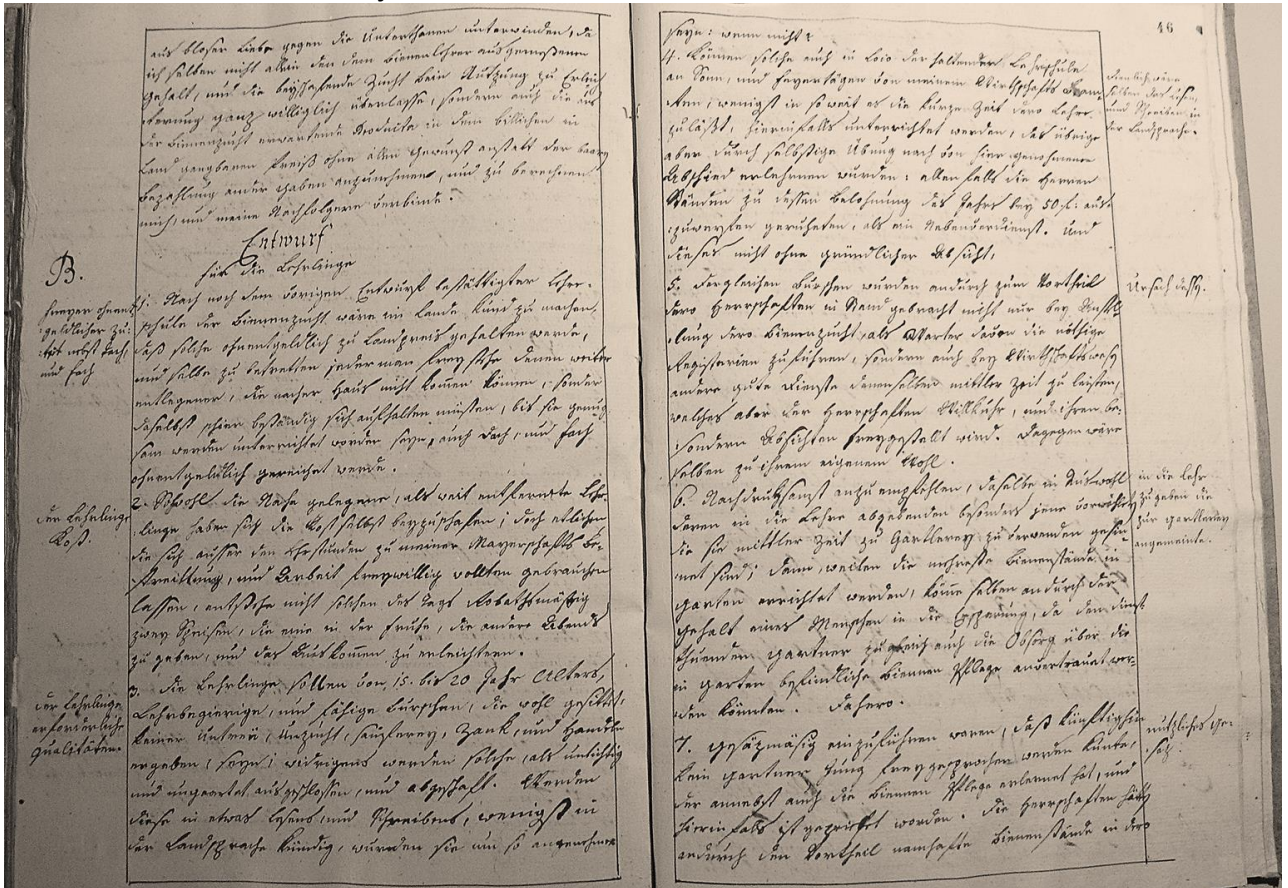 aus bloser Liebe gegen die Unterthanen unterwinden, da
ich selben nicht allein den dem Bienenlehrer ausgemessenen
Gehalt, und die beyschaffende Zucht beim Nutzung zu Erleich
terung ganz williglich überlasse, sondern auch die aus
der Bienenzucht erwartende Producta in dem billichen im
Land gangbaren Preiß ohne allen Gewinst anstatt der baaren
Bezahlung anzunehmen, und zu berechnen
mich, und meine Nachfolgere verbinde.
Entwurf
für die Lehrlinge
B.
1. Nach noch dem vorigen Entwurf bestättigter Lehr-
schule der Bienenzucht wäre im Lande kund zu machen,
daß solche ohnentgeldlich zu Landspreis gehalten werde,
und selbe zu betretten jederman frey stehe denen weiter
entlegenen, die nacher Haus nicht kommen können, sondern
daselbst schier beständig sich aufhalten müssten, bis sie genug
sam werden unterrichtet worden seyn, auch Dach, und Fach
ohnentgeldlich gereichet werde.
freyer ohnent
geldlicher Zu-
tritt nebst Dach,
und Fach
2. Sowohl die Nahe gelegene, als weit entfernte Lehr-
linge haben sich die Kost selbst beyzuschafen, doch etlichen
die sich ausser den Lehrstunden zu meiner Mayerschafts Be-
streittung, und Arbeit freywillig wollten gebrauchen
lassen, entstehe nicht solchen des Tags Robathsmässig
zwey Speisen, die eine in der Fruhe, die andere Abends
zu geben, und das Auskommen zu erleichtern.
der Lehrlinge
Kost.
3. die Lehrlinge sollen von 15. bis 20 Jahr Alters,
Lehrbegierige, und fähige Burschen, die wohl gesittet,
keiner Untreü, Unzucht, Sauferey, Zank, und Händln
ergeben, seyn; widrigens werden solche, als untichtig
und ungeartet ausgeschlossen, und abgeschaft. Werden
diese in etwas Lesens, und Schreibens, wenigst in
der Landsprache kündig, wurden sie um so angenehmer
der Lehrlinge
erforderliche
Qualitäten.
46
seyn: wenn nicht:
4. Können solche auch in Loco der haltenden Lehrschule
an Sonn, und Feyertägen von meinem Wirthschafts Beam-
ten, wenigst in so weit es die kurze Zeit dero Lehre
zuläßt, hierinfalls unterrichtet werden, das übrige
aber durch selbstige Übung nach von hier genohmenen
Abschied erlehrnen wurden: allenfalls die Herren
Ständen zu dessen Belohnung des Jahrs bey 50. f. aus-
zuwerfen geruheten, als ein Nebenverdienst. Und
dieses nicht ohne gründlicher Absicht.
selben das Lesen,
und Schreiben in
der Landsprache.
5. Dergleichen Burschen wurden andurch zum Vortheil
dero Herrschaften in Stand gebracht nicht nur bey Anstel-
lung dero Bienenzucht, als Warter davon die nöthige
Registerien zu führen, sondern auch bey Wirthschaftswesen
andere gute Dienste denenselben mittler Zeit zu leisten,
welches aber der Herrschaften Willkuhr, und ihren be-
sondern Absichten freygestellt wird. Dagegen wäre
selben zu ihrem eigenem Wohl.
Ursach dessen.
6. Nachdrüksamst anzuempfehlen, daselbe in Auswahl
deren in die Lehre abgebenden besonders jene
die sie mittler Zeit zu Gartlerey zu verwenden gesin-
net sind; dann, weilen die mehreste Bienenstände in
Garten errichtet werden, könne selben andurch der
Gehalt eines Menschen in die Ersparung, da den dienst
thuenden Gartner zugleich auch die Obsorg über die
in Garten befindliche Biennen Pflege anvertrauet wer-
den könnten. Dahero.
in die Lehr
zugeben die
zur Gartlerey
angemeinte.
7. Gesäzmäsig einzuführen wären, daß künftighin
kein Gartner Jung freygesprochen werden kunte,
der annebst auch die Biennen Pflege erlernet hat, und
hierinfalls ist geprüfet worden. Die Herrschaften hätten
andurch den Vortheil namhafte Bienenstände in dero
nutzliches Ge-
säz.